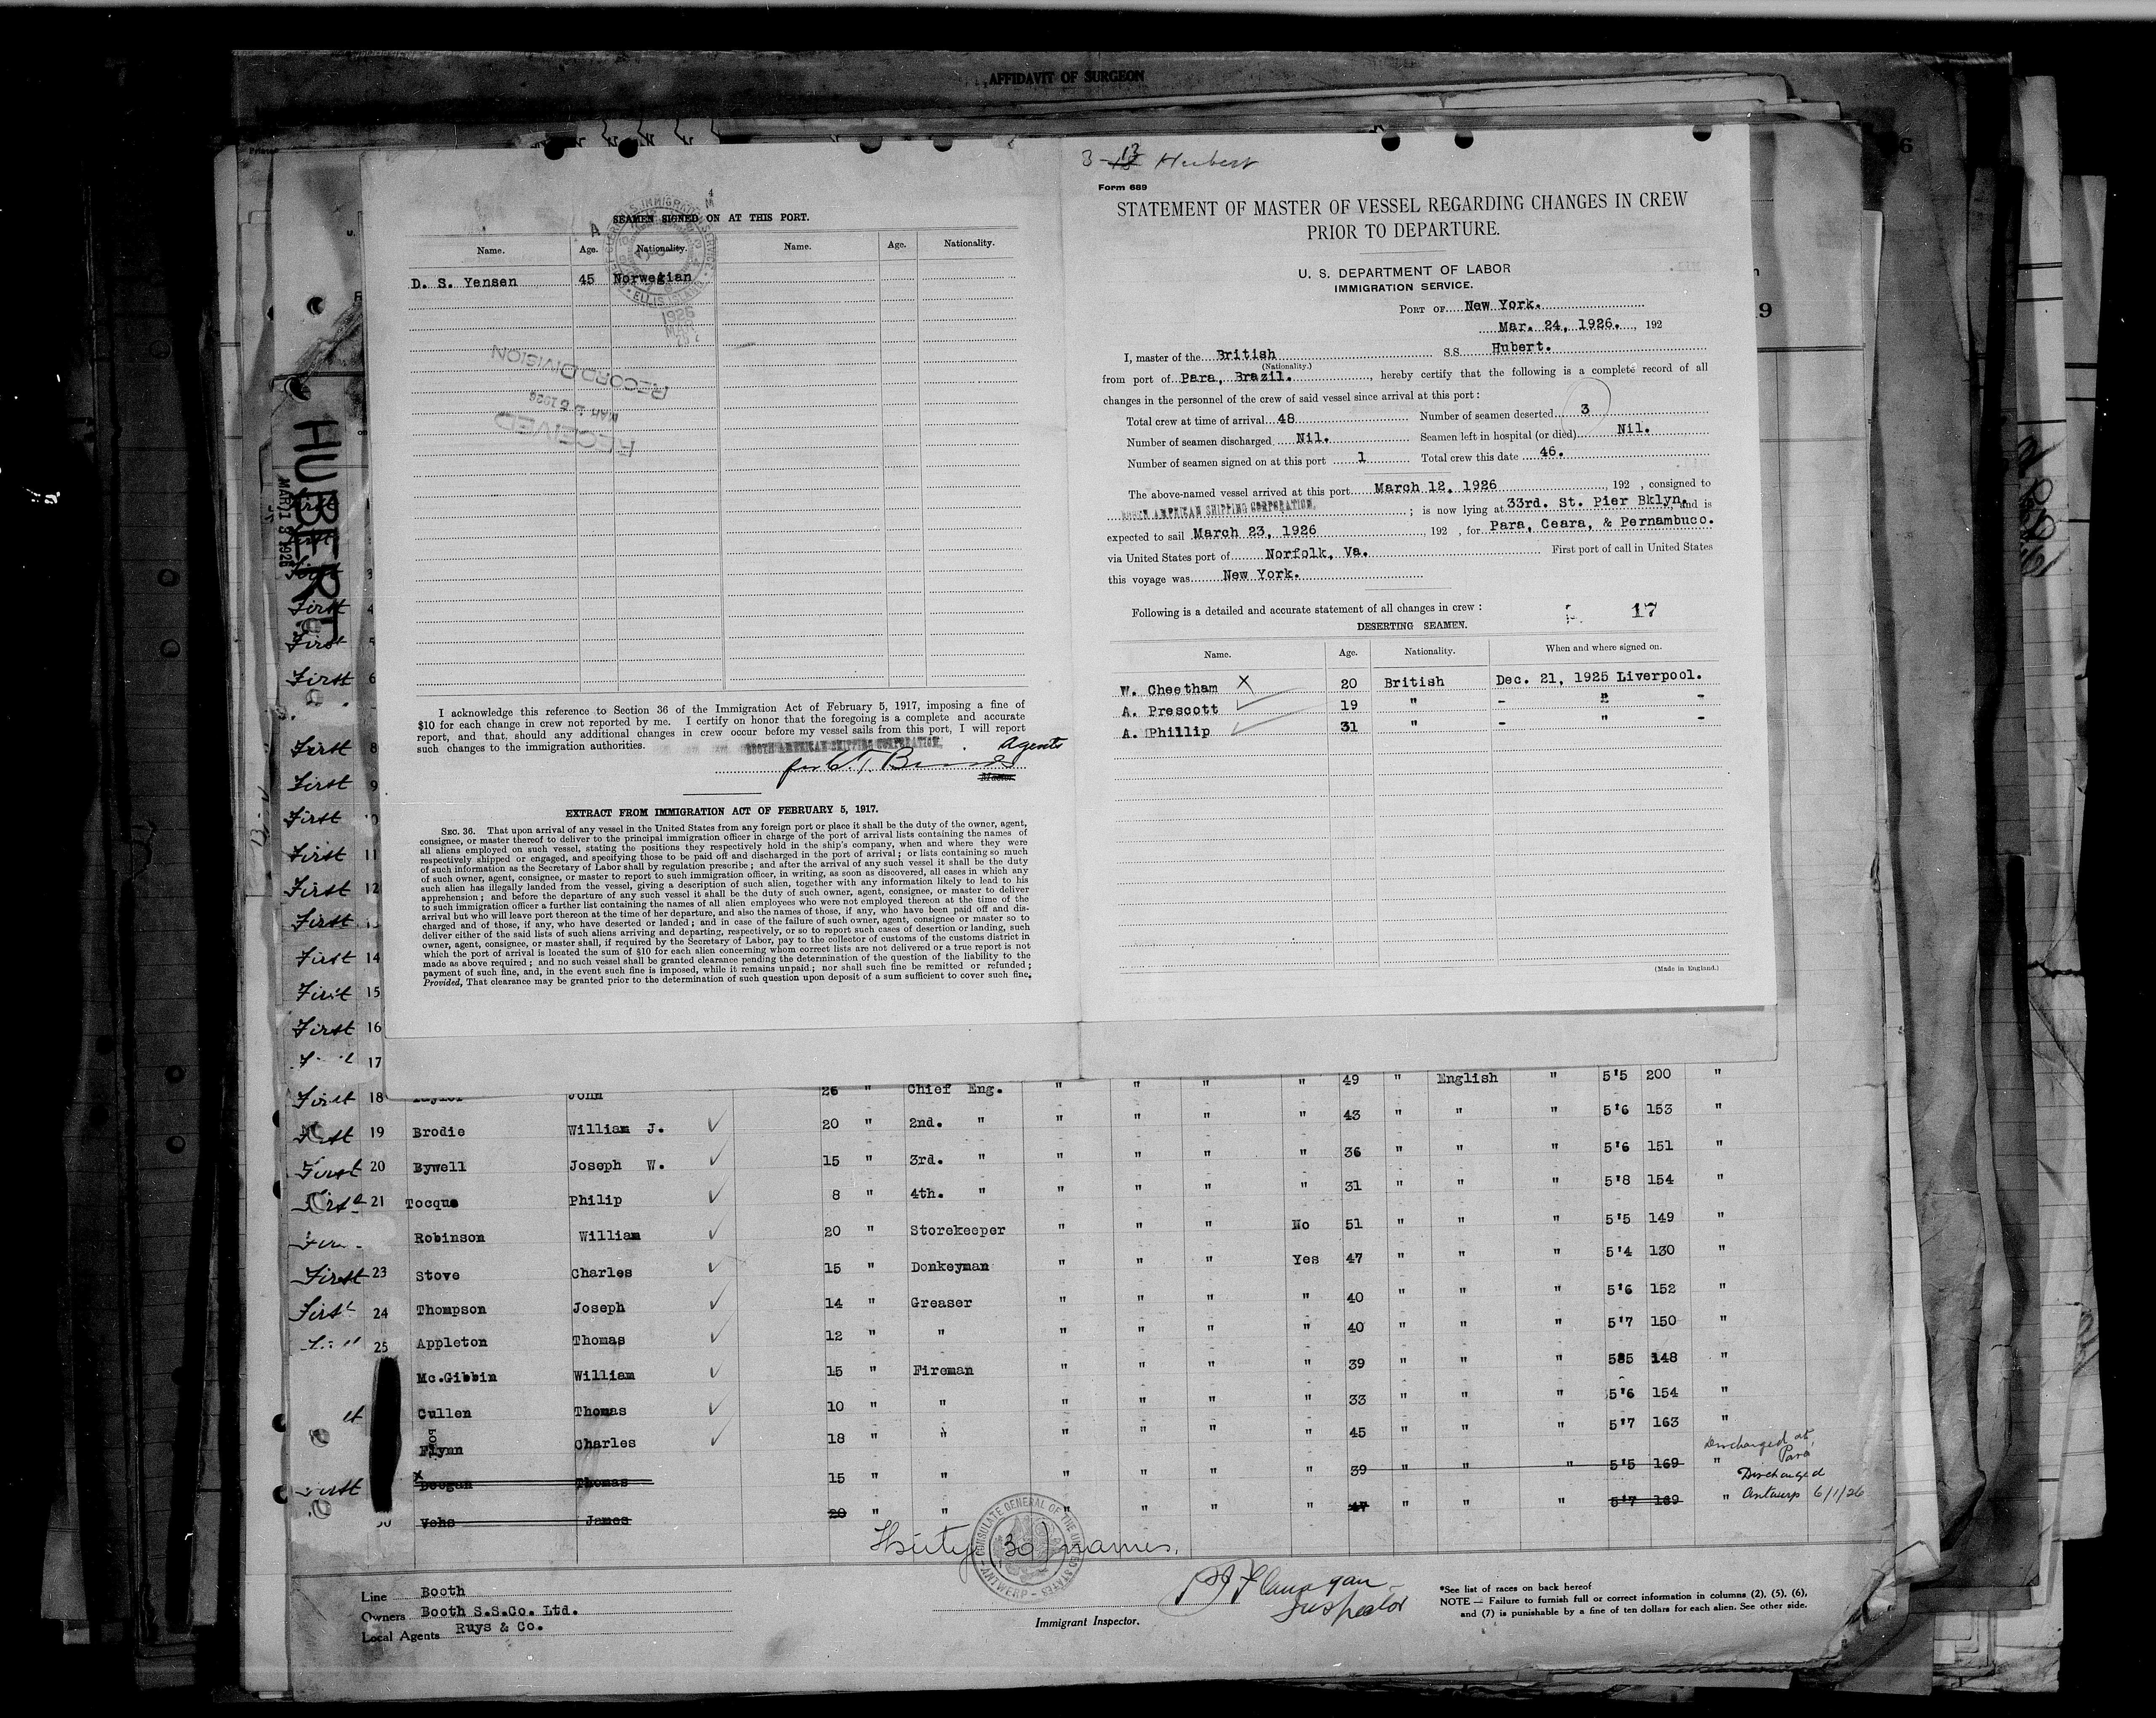 AFFIDAVIT OF SURGEON
SEAMEN SIGNED ON AT THIS PORT.
Name. Age. Nationality. Name. Age. Nationality.
D. S. Yensen 45 Norwegian
1926
RECORD DIVISION
MAR 25 1926
RECEIVED
I acknowledge this reference to Section 36 of the Immigration Act of February 5, 1917, imposing a fine of
$10 for each change in crew not reported by me. I certify on honor that the foregoing is a complete and accurate
report, and that, should any additional changes in crew occur before my vessel sails from this port, I will report
such changes to the immigration authorities. BOOTH AMERICAN SHIPPING CORPORATION, Agents
Master.
EXTRACT FROM IMMIGRATION ACT OF FEBRUARY 5, 1917.
SEC. 36. That upon arrival of any vessel in the United States from any foreign port or place it shall be the duty of the owner, agent,
consignee, or master thereof to deliver to the principal immigration officer in charge of the port of arrival lists containing the names of
all aliens employed on such vessel, stating the positions they respectively hold in the ship's company, when and where they were
respectively shipped or engaged, and specifying those to be paid off and discharged in the port of arrival; or lists containing so much
of such information as the Secretary of Labor shall by regulation prescribe; and after the arrival of any such vessel it shall be the duty
of such owner, agent, consignee, or master to report to such immigration officer, in writing, as soon as discovered, all cases in which any
such alien has illegally landed from the vessel, giving a description of such alien, together with any information likely to lead to his
apprehension; and before the departure of any such vessel it shall be the duty of such owner, agent, consignee, or master to deliver
to such immigration officer a further list containing the names of all alien employees who were not employed thereon at the time of the
arrival but who will leave port thereon at the time of her departure, and also the names of those, if any, who have been paid off and dis-
charged and of those, if any, who have deserted or landed; and in case of the failure of such owner, agent, consignee or master so to
deliver either of the said lists of such aliens arriving and departing, respectively, or so to report such cases of desertion or landing, such
owner, agent, consignee, or master, shall, if required by the Secretary of Labor, pay to the collector of customs of the customs district in
which the port of arrival is located the sum of $10 for each alien concerning whom correct lists are not delivered or a true report is not
made as above required; and no such vessel shall be granted clearance pending the determination of the question of the liability to the
payment of such fine, and, in the event such fine is imposed, while it remains unpaid; nor shall such fine be remitted or refunded;
Provided, That clearance may be granted prior to the determination of such question upon deposit of a sum sufficient to cover such fine.
3 - 13 Hubert
Form 689
STATEMENT OF MASTER OF VESSEL REGARDING CHANGES IN CREW
PRIOR TO DEPARTURE.
U. S. DEPARTMENT OF LABOR
IMMIGRATION SERVICE.
PORT OF New York.
Mar. 24, 1926. , 192
I, master of the British S.S. Hubert.
(Nationality.)
from port of Para, Brazil. , hereby certify that the following is a complete record of all
changes in the personnel of the crew of said vessel since arrival at this port:
Total crew at time of arrival 48 Number of seamen deserted 3
Number of seamen discharged Nil. Seamen left in hospital (or died) Nil.
Number of seamen signed on at this port 1 Total crew this date 46.
The above-named vessel arrived at this port March 12, 1926 , 192 , consigned to
BOOTH AMERICAN SHIPPING CORPORATION, ; is now lying at 33rd. St. Pier Bklyn. and is
expected to sail March 23, 1926 , 192 , for Para, Ceara, & Pernambuco.
via United States port of Norfolk, Va. First port of call in United States
this voyage was New York.
Following is a detailed and accurate statement of all changes in crew: 17
DESERTING SEAMEN.
Name. Age. Nationality. When and where signed on.
W. Cheetham X 20 British Dec. 21, 1925 Liverpool.
A. Prescott 19 " - " -
A. Phillip 31 " - " -
(Made in England.)
HUBERT
MAR 13 1926
First
First
First 3
First 4
First 5
First 6
First 8
First 9
First 10
First 11
First 12
First
First 14
First 15
First 16
17
First 18 John 26 " Chief Eng. " " " " 49 " English " 5'5 200 "
First 19 Brodie William J. 20 " 2nd. " " " " " 43 " " " 5'6 153 "
First 20 Bywell Joseph W. 15 " 3rd. " " " " " 36 " " " 5'6 151 "
First 21 Tocque Philip 8 " 4th. " " " " " 31 " " " 5'8 154 "
Robinson William 20 " Storekeeper " " " No 51 " " " 5'5 149 "
First 23 Stove Charles 15 " Donkeyman " " " Yes 47 " " " 5'4 130 "
First 24 Thompson Joseph 14 " Greaser " " " " 40 " " " 5'6 152 "
25 Appleton Thomas 12 " " " " " " 40 " " " 5'7 150 "
Mc.Gibbin William 15 " Fireman " " " " 39 " " " 585 148 "
Cullen Thomas 10 " " " " " " 33 " " " 5'6 154 "
Flynn Charles 18 " " " " " " 45 " " " 5'7 163 "
First Deegan Thomas 15 " " " " " " 39 " " " 5'5 169 " Discharged at Para
Vohs James 20 " " " " " " 47 " " " 5'7 189 " Discharged Antwerp 6/1/26
Thirty (30) names.
CONSULATE GENERAL OF THE UNITED STATES
ANTWERP
Line Booth
Owners Booth S.S.Co. Ltd.
Local Agents Ruys & Co.
Inspector
Immigrant Inspector.
*See list of races on back hereof
NOTE — Failure to furnish full or correct information in columns (2), (5), (6),
and (7) is punishable by a fine of ten dollars for each alien. See other side.